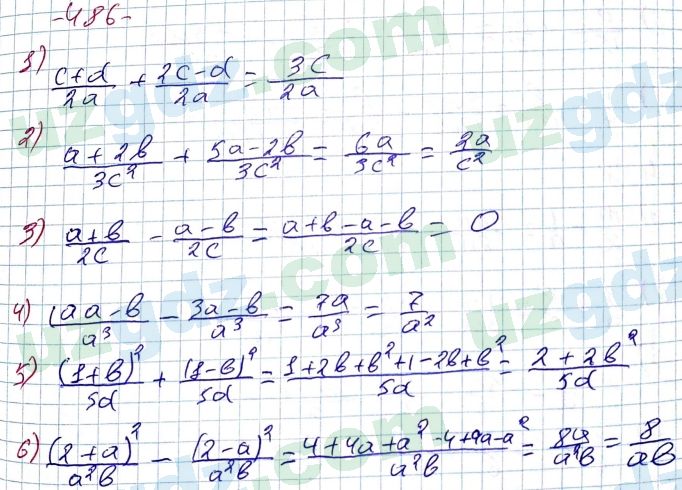 -486-
1) (c+d)/(2a) + (2c-d)/(2a) = 3c/(2a)
2) (a+2b)/(3c²) + (5a-2b)/(3c²) = 6a/(3c²) = 2a/c²
3) (a+b)/(2c) - (a-b)/(2c) = (a+b-a-b)/(2c) = 0
4) (aa-b)/a³ - (3a-b)/a³ = 7a/a³ = 7/a²
5) (1+b)²/(5d) + (1-b)²/(5d) = (1+2b+b²+1-2b+b²)/(5d) = (2+2b²)/(5d)
6) (2+a)²/(a²b) - (2-a)²/(a²b) = (4+4a+a²-4+4a-a²)/(a²b) = 8a/(a²b) = 8/(ab)
uzgdz.com